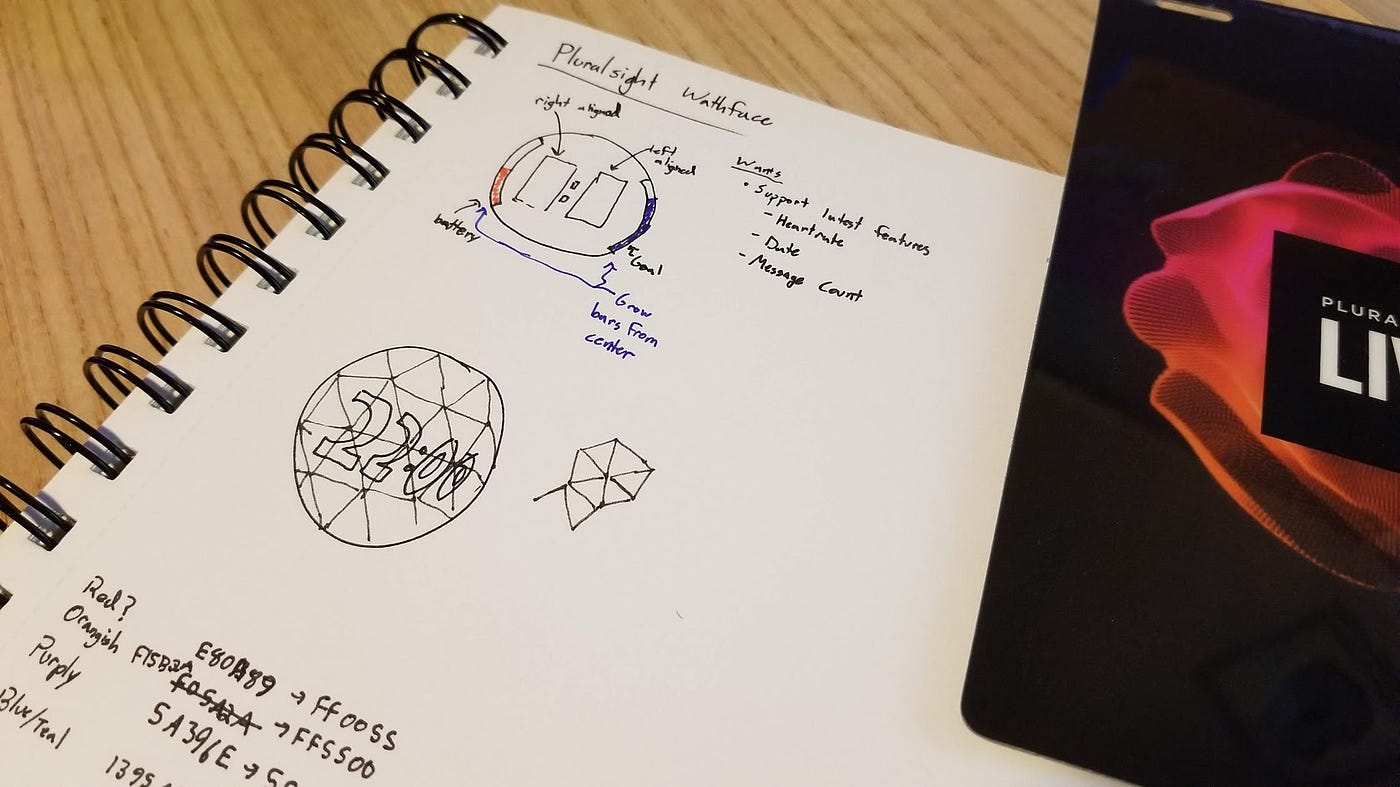 Pluralsight Wathface
right aligned
left
aligned
battery
Goal
Grow
bars from
center
Wants
• Support latest features
- Heartrate
- Date
- Message Count
22:00
Red? E80A89 → FF0055
Orangish F15B2A F05A2A → FF5500
Purply 5A396E →
Blue/Teal 1395
PLURA
LIV